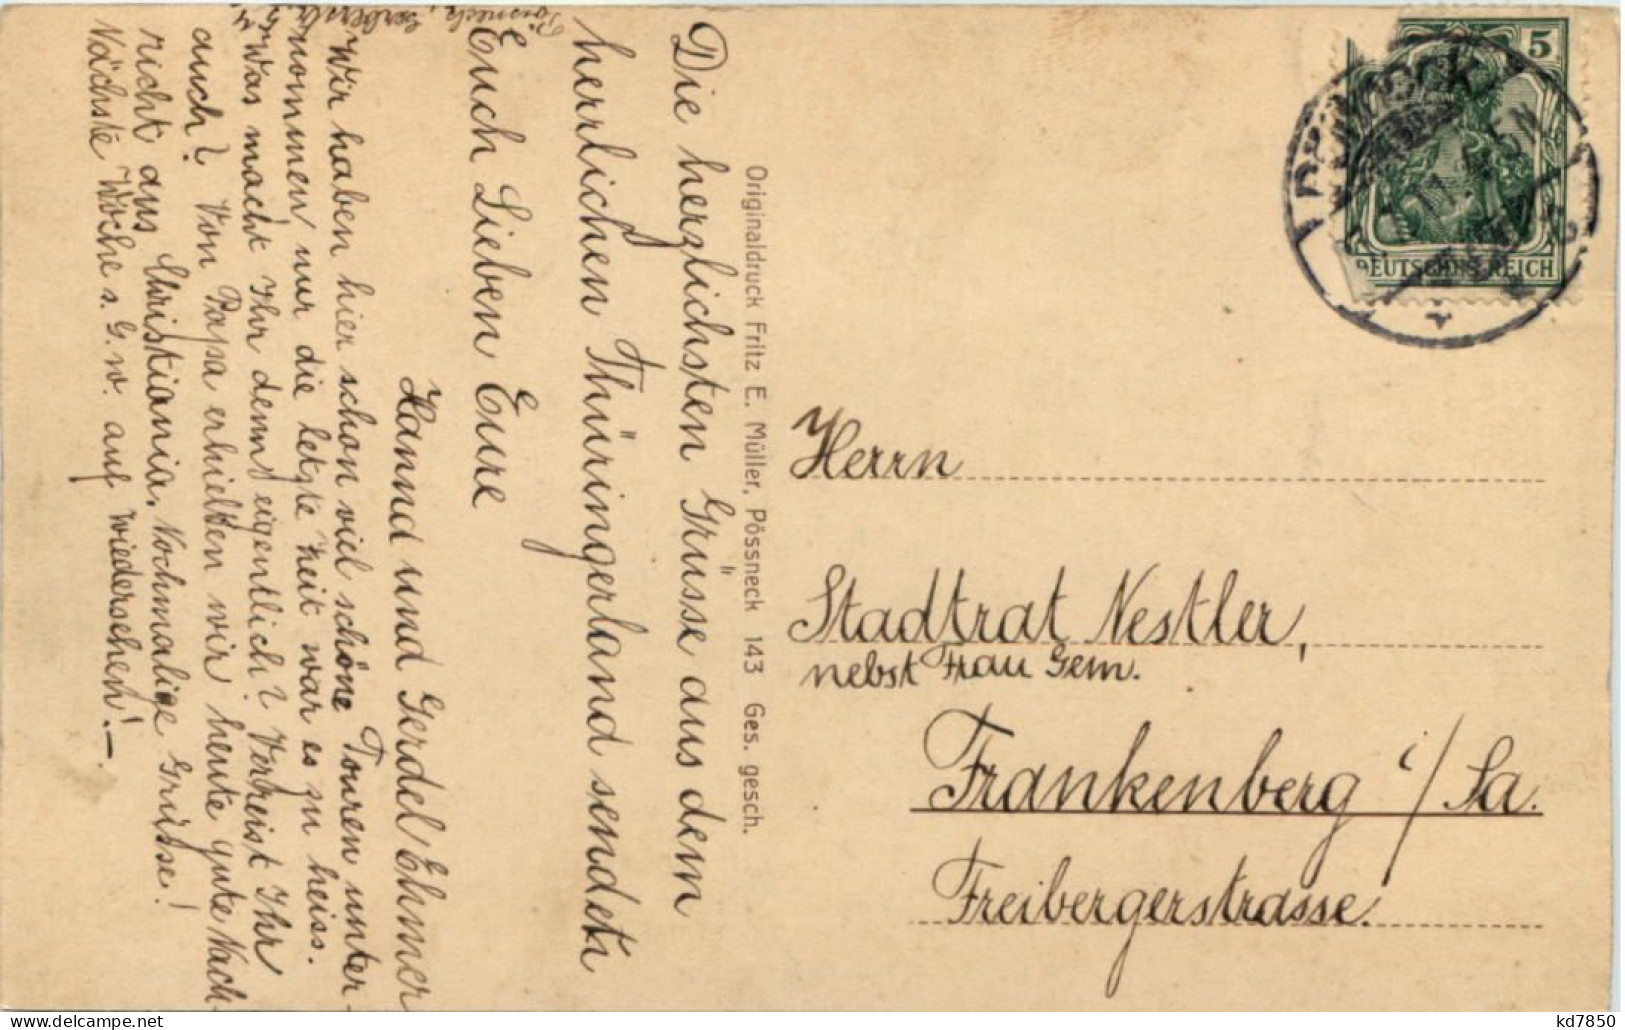 Die herzlichsten Grüsse aus dem
herrlichen Thüringerland sendet
Euch Lieben Eure
Hanna und Gerdel Ehmer
Wir haben hier schon viel schöne Touren unter-
nommen nur die letzte Zeit war es zu heiss.
Was macht Ihr denn eigentlich? Verreist Ihr
auch? Von Papa erhielten wir heute gute Nach-
richt aus Christiania. Nochmalige Grüsse!
Nächste Woche s. G. w. auf wiedersehen! –
Pössneck,
Originaldruck Fritz E. Müller, Pössneck 143 Ges. gesch.
5
DEUTSCHES REICH
Herrn
Stadtrat Nestler,
nebst Frau Gem.
Frankenberg i/Sa.
Freibergerstrasse.
kd7850